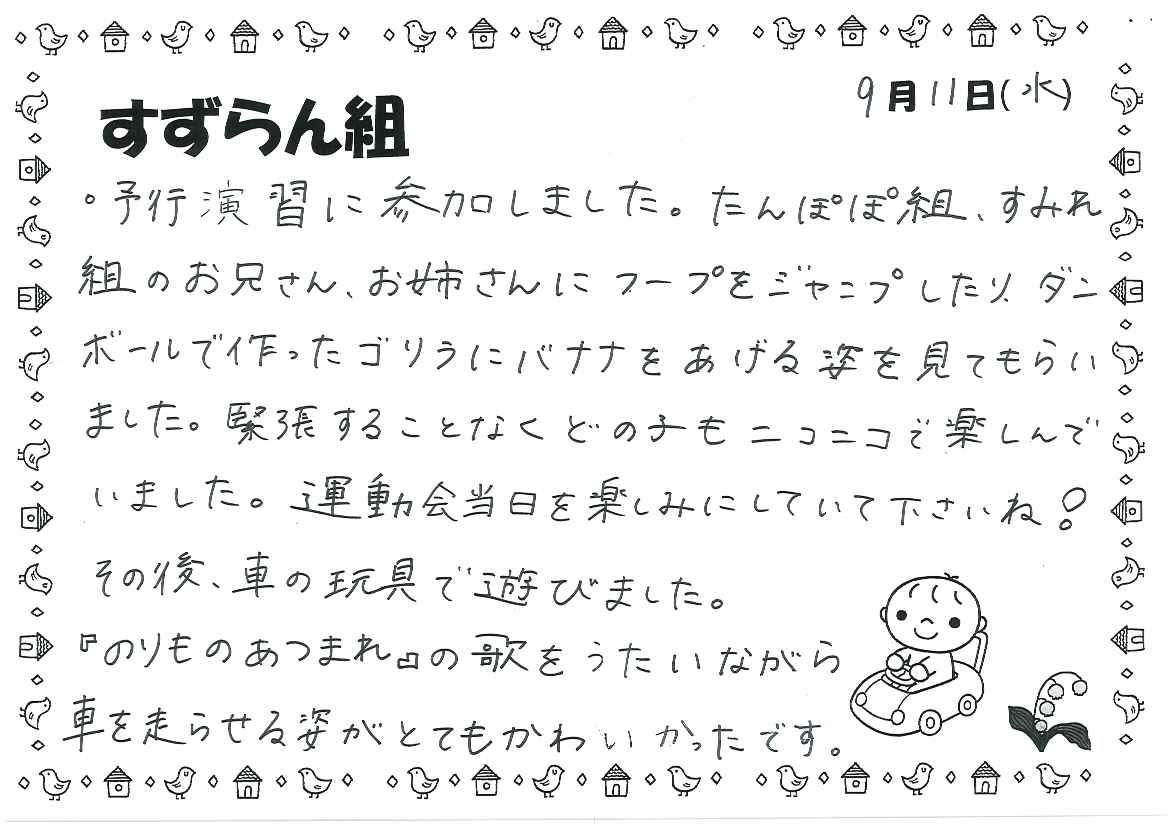 9月11日(水)
すずらん組
・予行演習に参加しました。たんぽぽ組、すみれ
組のお兄さん、お姉さんにフープをジャンプしたり、ダン
ボールで作ったゴリラにバナナをあげる姿を見てもらい
ました。緊張することなくどの子もニコニコで楽しんで
いました。運動会当日を楽しみにしていて下さいね!
その後、車の玩具で遊びました。
『のりものあつまれ』の歌をうたいながら
車を走らせる姿がとてもかわいかったです。